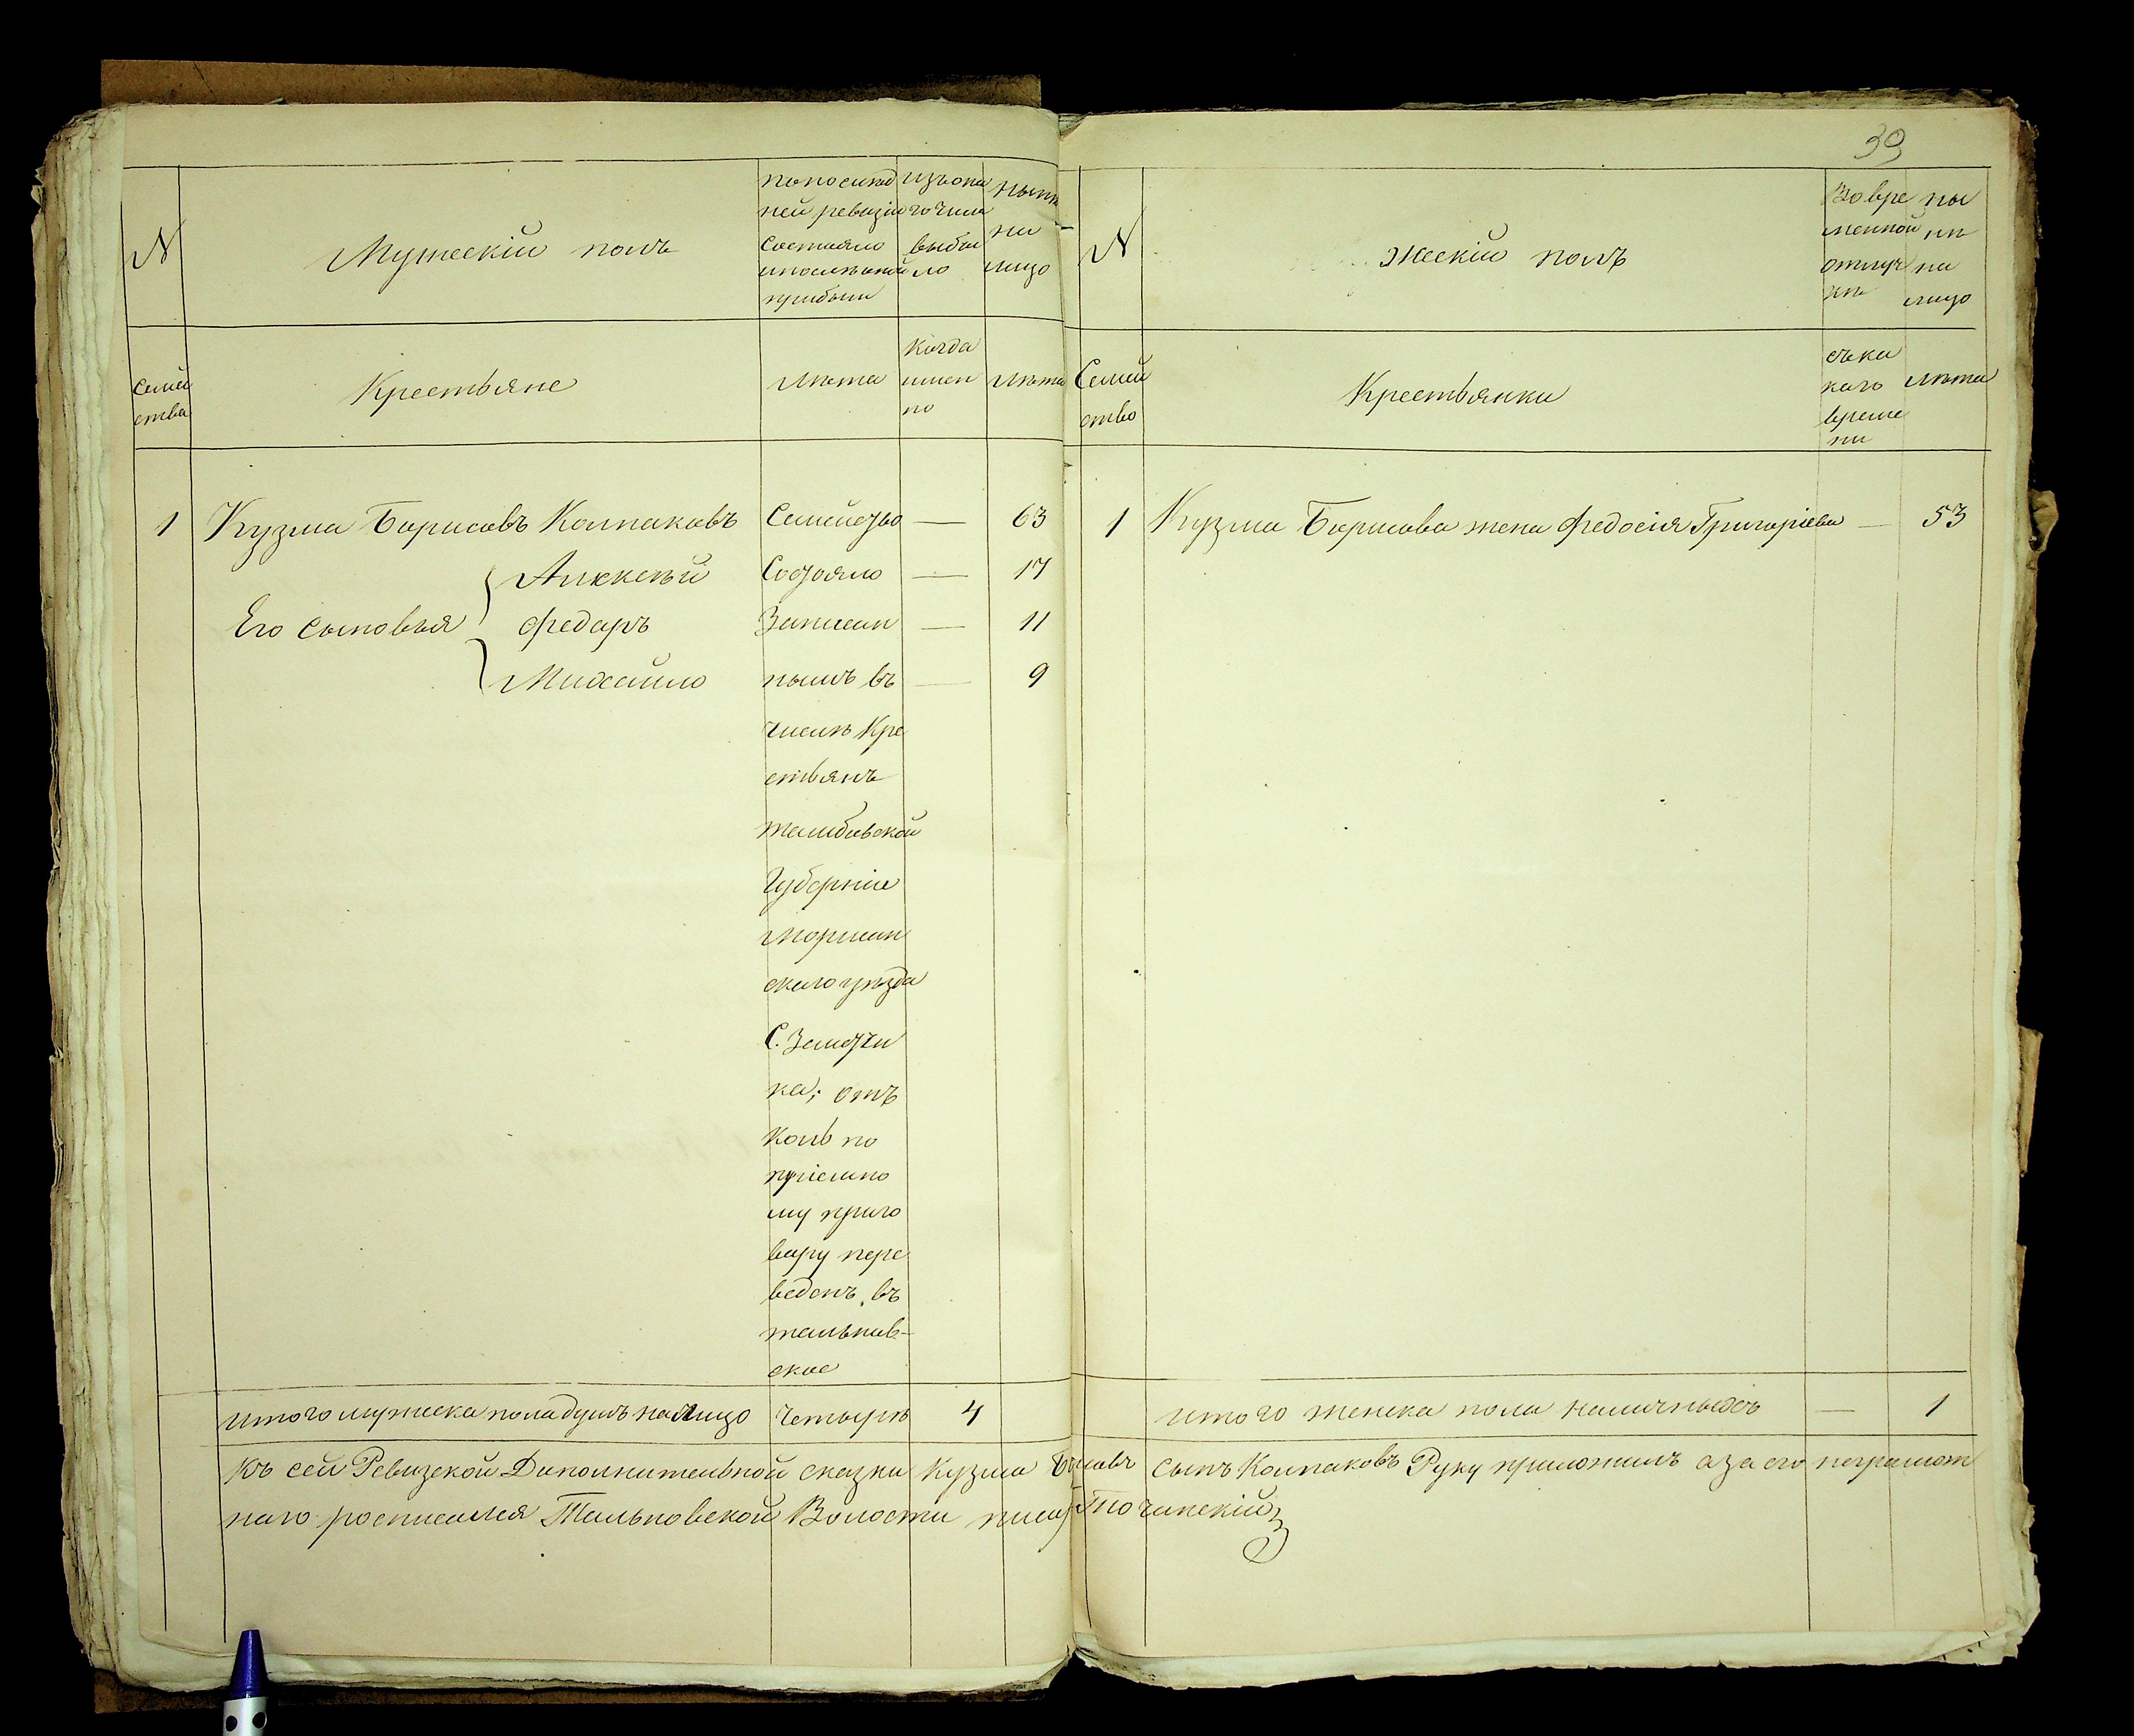 39
N
Мужескій полъ
по послѣд
ней ревизіи
состояло
и послѣ оной
прибыли
изъ она
го числа
выбы
ло
нынѣ
на
лицо
Семей
ства
Крестьяне
лѣта
Когда
имен
но
лѣта
1 Кузма Борисовъ Колпаковъ Семейство — 63
Алексѣй Состояло — 17
Его сыновья Федаръ Записан — 11
Михайло нымъ въ — 9
числѣ Кре
стьянъ
тамбовской
Губерніи
моршан
скаго уѣзда
С. Земетчи
на; отъ
коль по
пріемно
му приго
вару пере
веденъ въ
тальнов-
ское
итого мужеска пола душъ на лицо четыре 4
N
Жескій полъ
Во вре
менной
отлуч
кѣ
ны
нѣ
на
лицо
Семей
ство
Крестьянки
съ ка
каго
време
ни
лѣта
1 Кузма Борисова жена Федосія Григоріева — 53
итого женска пола наличныхъ — 1
Къ сей Ревизской Дополнительной сказки Кузма Борисовъ сынъ Колпаковъ Руку приложилъ а за его неграмот
наго росписался Тальновской Волости писарь